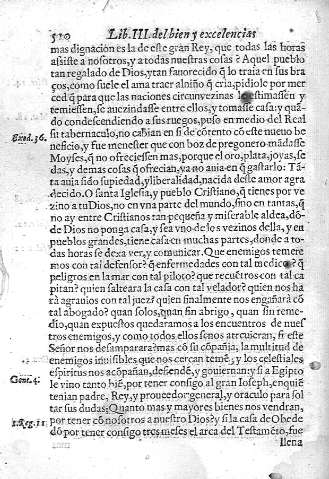 510 Lib. III. del bien y excelencias
mas dignacion es la de este gran Rey, que todas las horas
assiste a nosotros, y a todas nuestras cosas? Aquel pueblo
tan regalado de Dios, y tan fauorecido q̃ lo traia en sus bra
ços, como suele el ama traer al niño q̃ cria, pidiole por mer
ced q̃ para que las naciones circunvezinas lo estimassen y
temiessen, se auezindasse entre ellos, y tomasse casa: y quã-
do condescendiendo a sus ruegos, puso en medio del Real
su tabernaculo, no cabian en si de cõtento cõ este nueuo be
Exod. 36. neficio, y fue menester que con boz de pregonero mãdasse
Moyses, q̃ no ofreciessen mas, porque el oro, plata, joyas, se
das, y demas cosas q̃ ofrecian, ya no auia en q̃ gastarlo: Tã-
ta auia sido su piedad, y liberalidad, nacida deste amor agra
decido. O santa Iglesia, y pueblo Cristiano, q̃ tienes por ve
zino a tu Dios, no en vna parte del mundo, sino en tantas, q̃
no ay entre Cristianos tan pequeña y miserable aldea, dõ-
de Dios no ponga casa, y sea vno de los vezinos della, y en
pueblos grandes, tiene casa en muchas partes, donde a to-
das horas se dexa ver, y comunicar. Que enemigos teme
remos con tal defensor? q̃ enfermedades con tal medico? q̃
peligros en la mar con tal piloto? que recuẽtros con tal ca
pitan? quien salteara la casa con tal velador? quien nos ha
rà agrauios con tal juez? quien finalmente nos engañarà cõ
tal abogado? quan solos, quan sin abrigo, quan sin reme-
dio, quan expuestos quedaramos a los encuentros de nues
tros enemigos, y como todos ellos se nos atreuieran, si este
Señor nos desamparara? mas cõ su cõpañia, la multitud de
enemigos inuisibles que nos cercan teme; y los celestiales
espiritus nos acõpañan, defiendẽ, y gouiernan: y si a Egipto
le vino tanto biẽ, por tener consigo al gran Ioseph, enquiẽ
tenian padre, Rey, y proueedor general, y oraculo para sol
tar sus dudas: Quanto mas y mayores bienes nos vendran,
por tener cõ nosotros a nuestro Dios? y si la casa de Obede
dõ por tener consigo tres meses el arca del Testamẽto, fue
llena